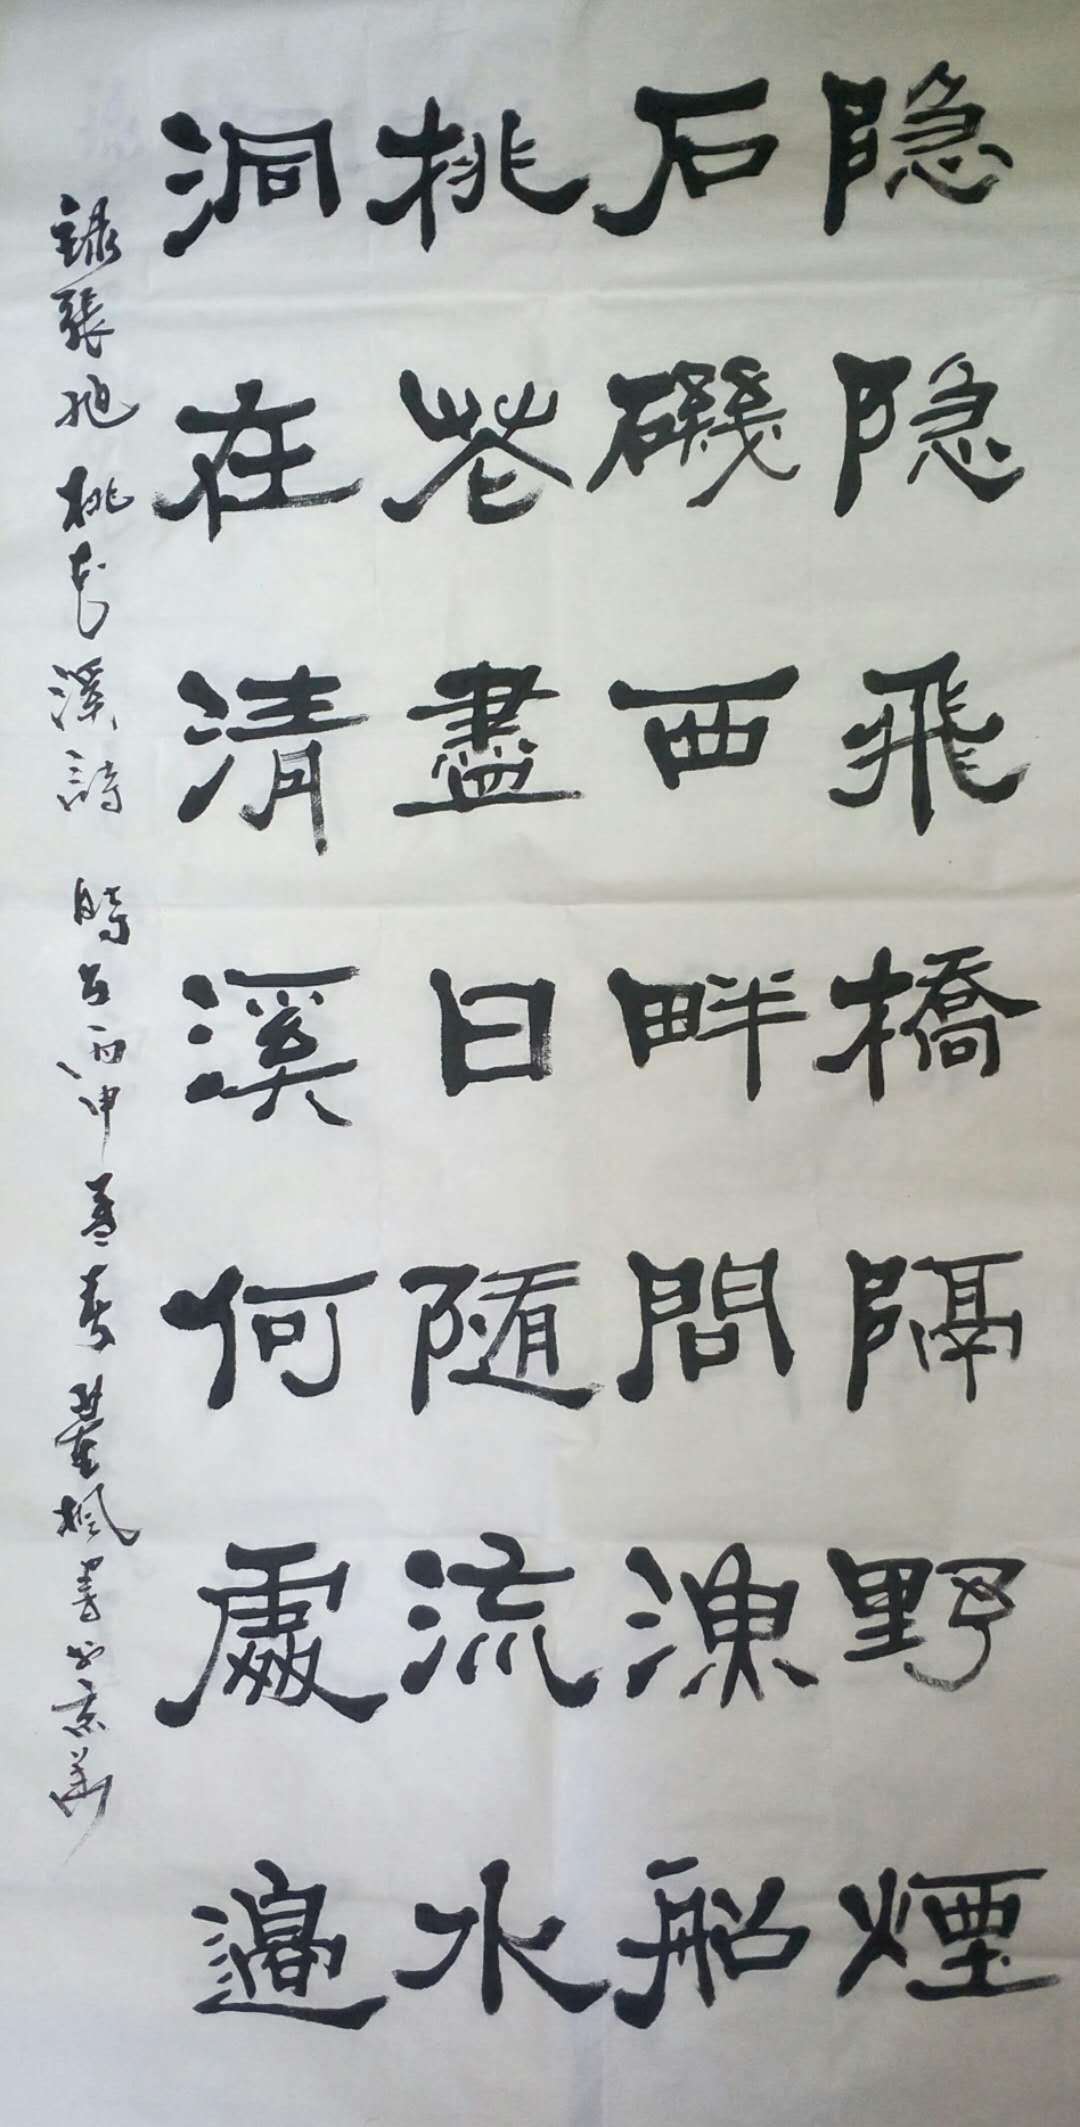 隐隐飛橋隔野煙
石磯西畔問漁船
桃花盡日随流水
洞在清溪何處邊
録張旭桃花溪詩 時在丙申孟春 楓書於京華